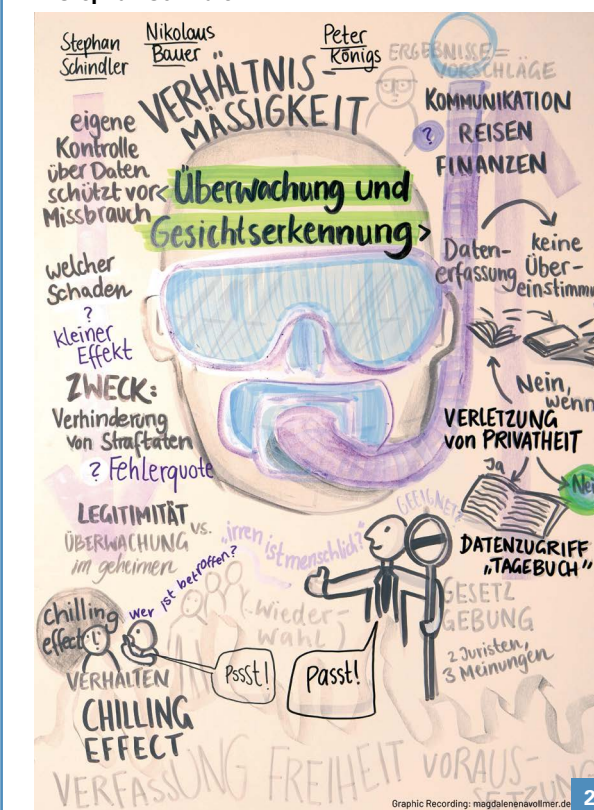 Stephan
Schindler
Nikolaus
Bauer
Peter
Königs
ERGEBNISSE =
VORSCHLÄGE
VERHÄLTNIS-
MÄSSIGKEIT
KOMMUNIKATION
? REISEN
FINANZEN
eigene
Kontrolle
über Daten
schützt vor
Missbrauch
< Überwachung und
Gesichtserkennung >
Daten-
erfassung
keine
Über-
einstimmu
welcher
Schaden
?
kleiner
Effekt
Nein,
wenn
ZWECK:
Verhinderung
von Straftaten
? Fehlerquote
VERLETZUNG
von PRIVATHEIT
Ja
Nei
DATENZUGRIFF
"TAGEBUCH"
LEGITIMITÄT
vs.
ÜBERWACHUNG
im geheimen
"irren ist menschlich?"
GEEIGNET?
wer ist betroffen?
(Wieder-
wahl)
GESETZ
GEBUNG
2 Juristen,
3 Meinungen
chilling
effect
Pssst!
Passt!
VERHALTEN
CHILLING
EFFECT
VERFASSUNG FREIHEIT VORAUS-
SETZUNG
Graphic Recording: magdalenenavollmer.de
2